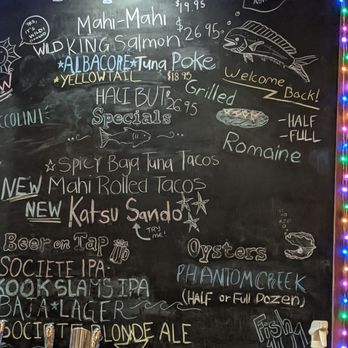 $19.95
Mahi-Mahi
Yes, it's WILD!
WILD KING Salmon $26.95
*ALBACORE *Tuna Poke
*YELLOWTAIL $18.95
Welcome Back!
HALIBUT $26.95
Grilled
-HALF
-FULL
Romaine
CCOLINI
Specials
☆Spicy Baja Tuna Tacos
NEW Mahi Rolled Tacos
NEW Katsu Sando
try me!
Beer on Tap
Oysters
SOCIETE IPA
PHANTOM CREEK
KOOK SLAMS IPA
(HALF or Full Dozen)
BAJA LAGER
SOCIETE BLONDE ALE
Fish